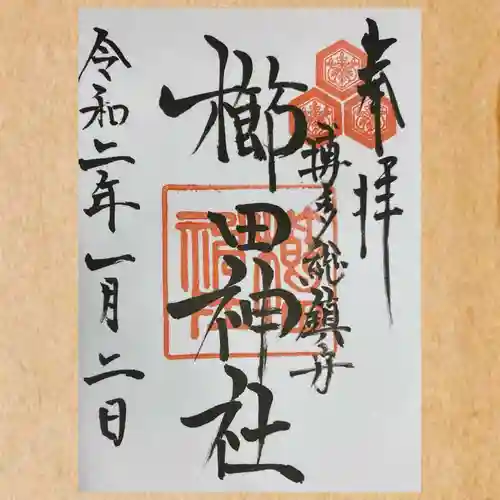 奉拝
博多総鎮守
櫛田神社
令和二年一月二日
櫛田神社